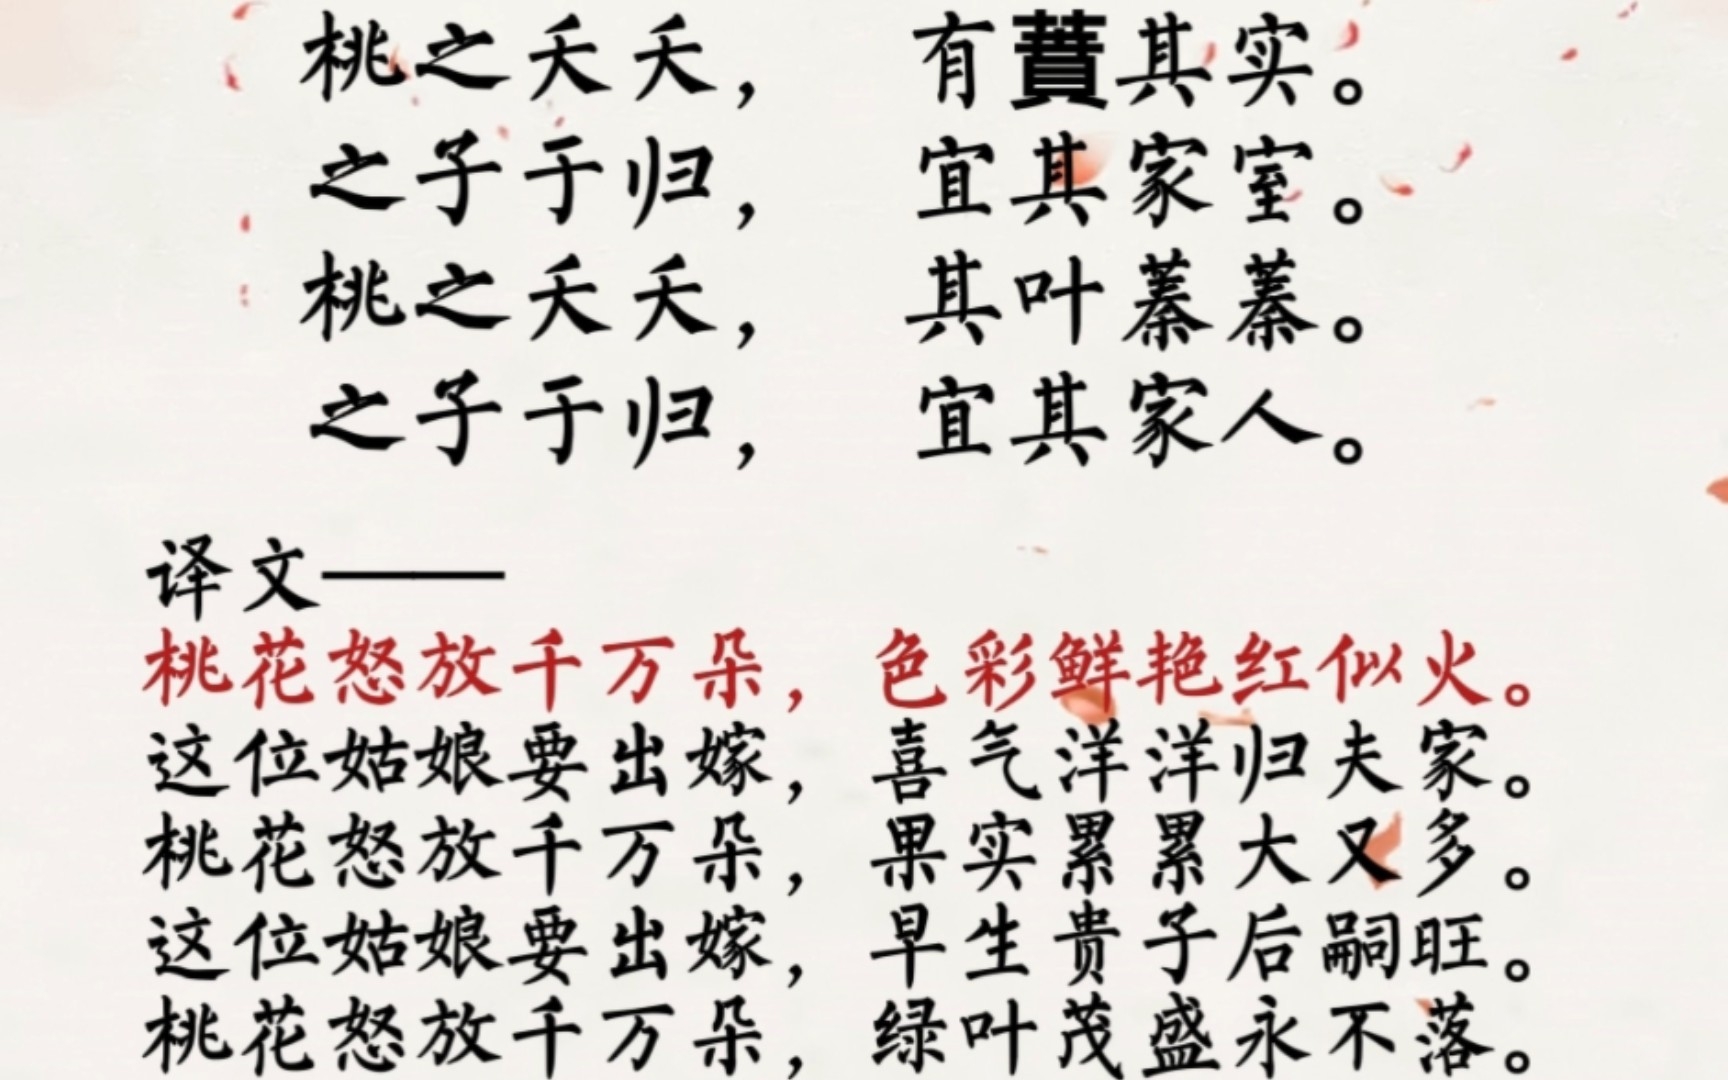 桃之夭夭，有蕡其实。
之子于归，宜其家室。
桃之夭夭，其叶蓁蓁。
之子于归，宜其家人。
译文——
桃花怒放千万朵，色彩鲜艳红似火。
这位姑娘要出嫁，喜气洋洋归夫家。
桃花怒放千万朵，果实累累大又多。
这位姑娘要出嫁，早生贵子后嗣旺。
桃花怒放千万朵，绿叶茂盛永不落。